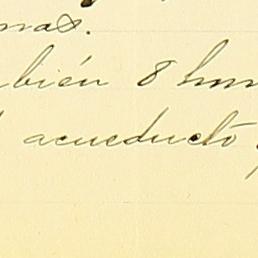 mas.
bién 8 hom
acueducto